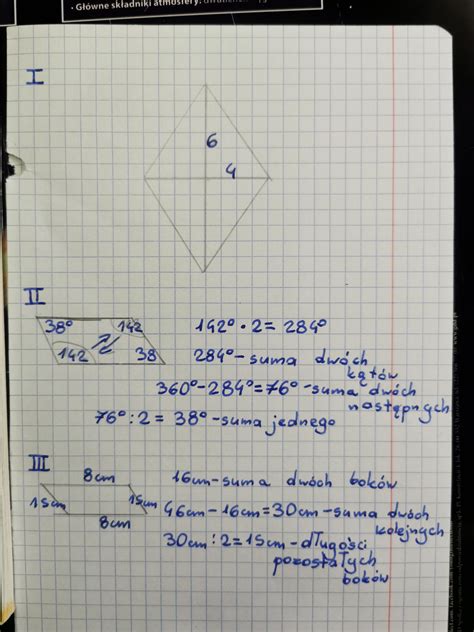 • Główne składniki atmosfery:
I
6
4
II
38° 142
142 38
142° · 2 = 284°
284° - suma dwóch
kątów
360° - 284° = 76° - suma dwóch
następnych
76° : 2 = 38° - suma jednego
III
8cm
15cm 15cm
8cm
16cm - suma dwóch boków
46cm - 16cm = 30cm - suma dwóch
kolejnych
30cm : 2 = 15cm - długości
pozostałych
boków